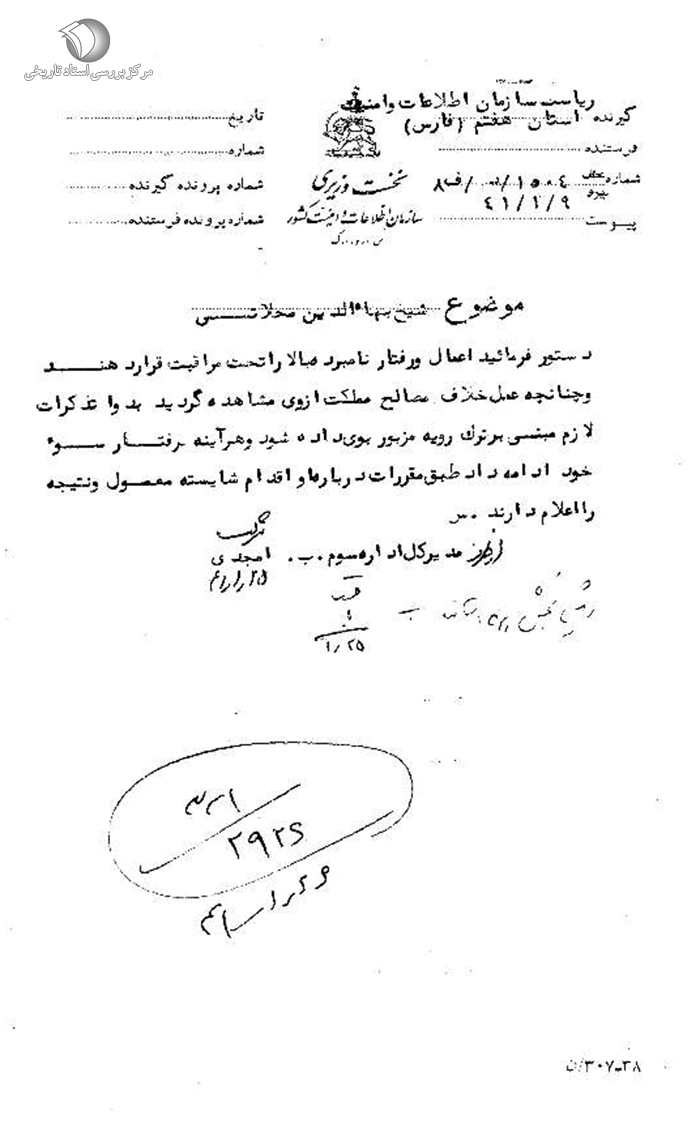 مرکز بررسی اسناد تاریخی
ریاست سازمان اطلاعات و امنیت
گیرنده استان هفتم (فارس)
فرستنده
شماره
پیوست
۴۱/۱/۹
نخست وزیری
سازمان اطلاعات و امنیت کشور
س.ا.و.ا.ک
تاریخ
شماره
شماره پرونده گیرنده
شماره پرونده فرستنده
موضوع شیخ بهاءالدین محلاتی
دستور فرمائید اعمال ورفتار نامبرده بالا راتحت مراقبت قرارد هند
وچنانچه عمل خلاف مصالح مملکت ازوی مشاهده گردید بدوا تذکرات
لازم مبنی برترك رویه مزبور بوی داده شود وهرآینه برفتار سوء
خود ادامه داد طبق مقررات درباره او اقدام شایسته معمول ونتیجه
را اعلام دارند.س
مدیرکل اداره سوم.ب. امجدی
۲۵/۱/۴۱
۱/۲۵
۲۹۲۵
۳۰۷-۳۸/ن